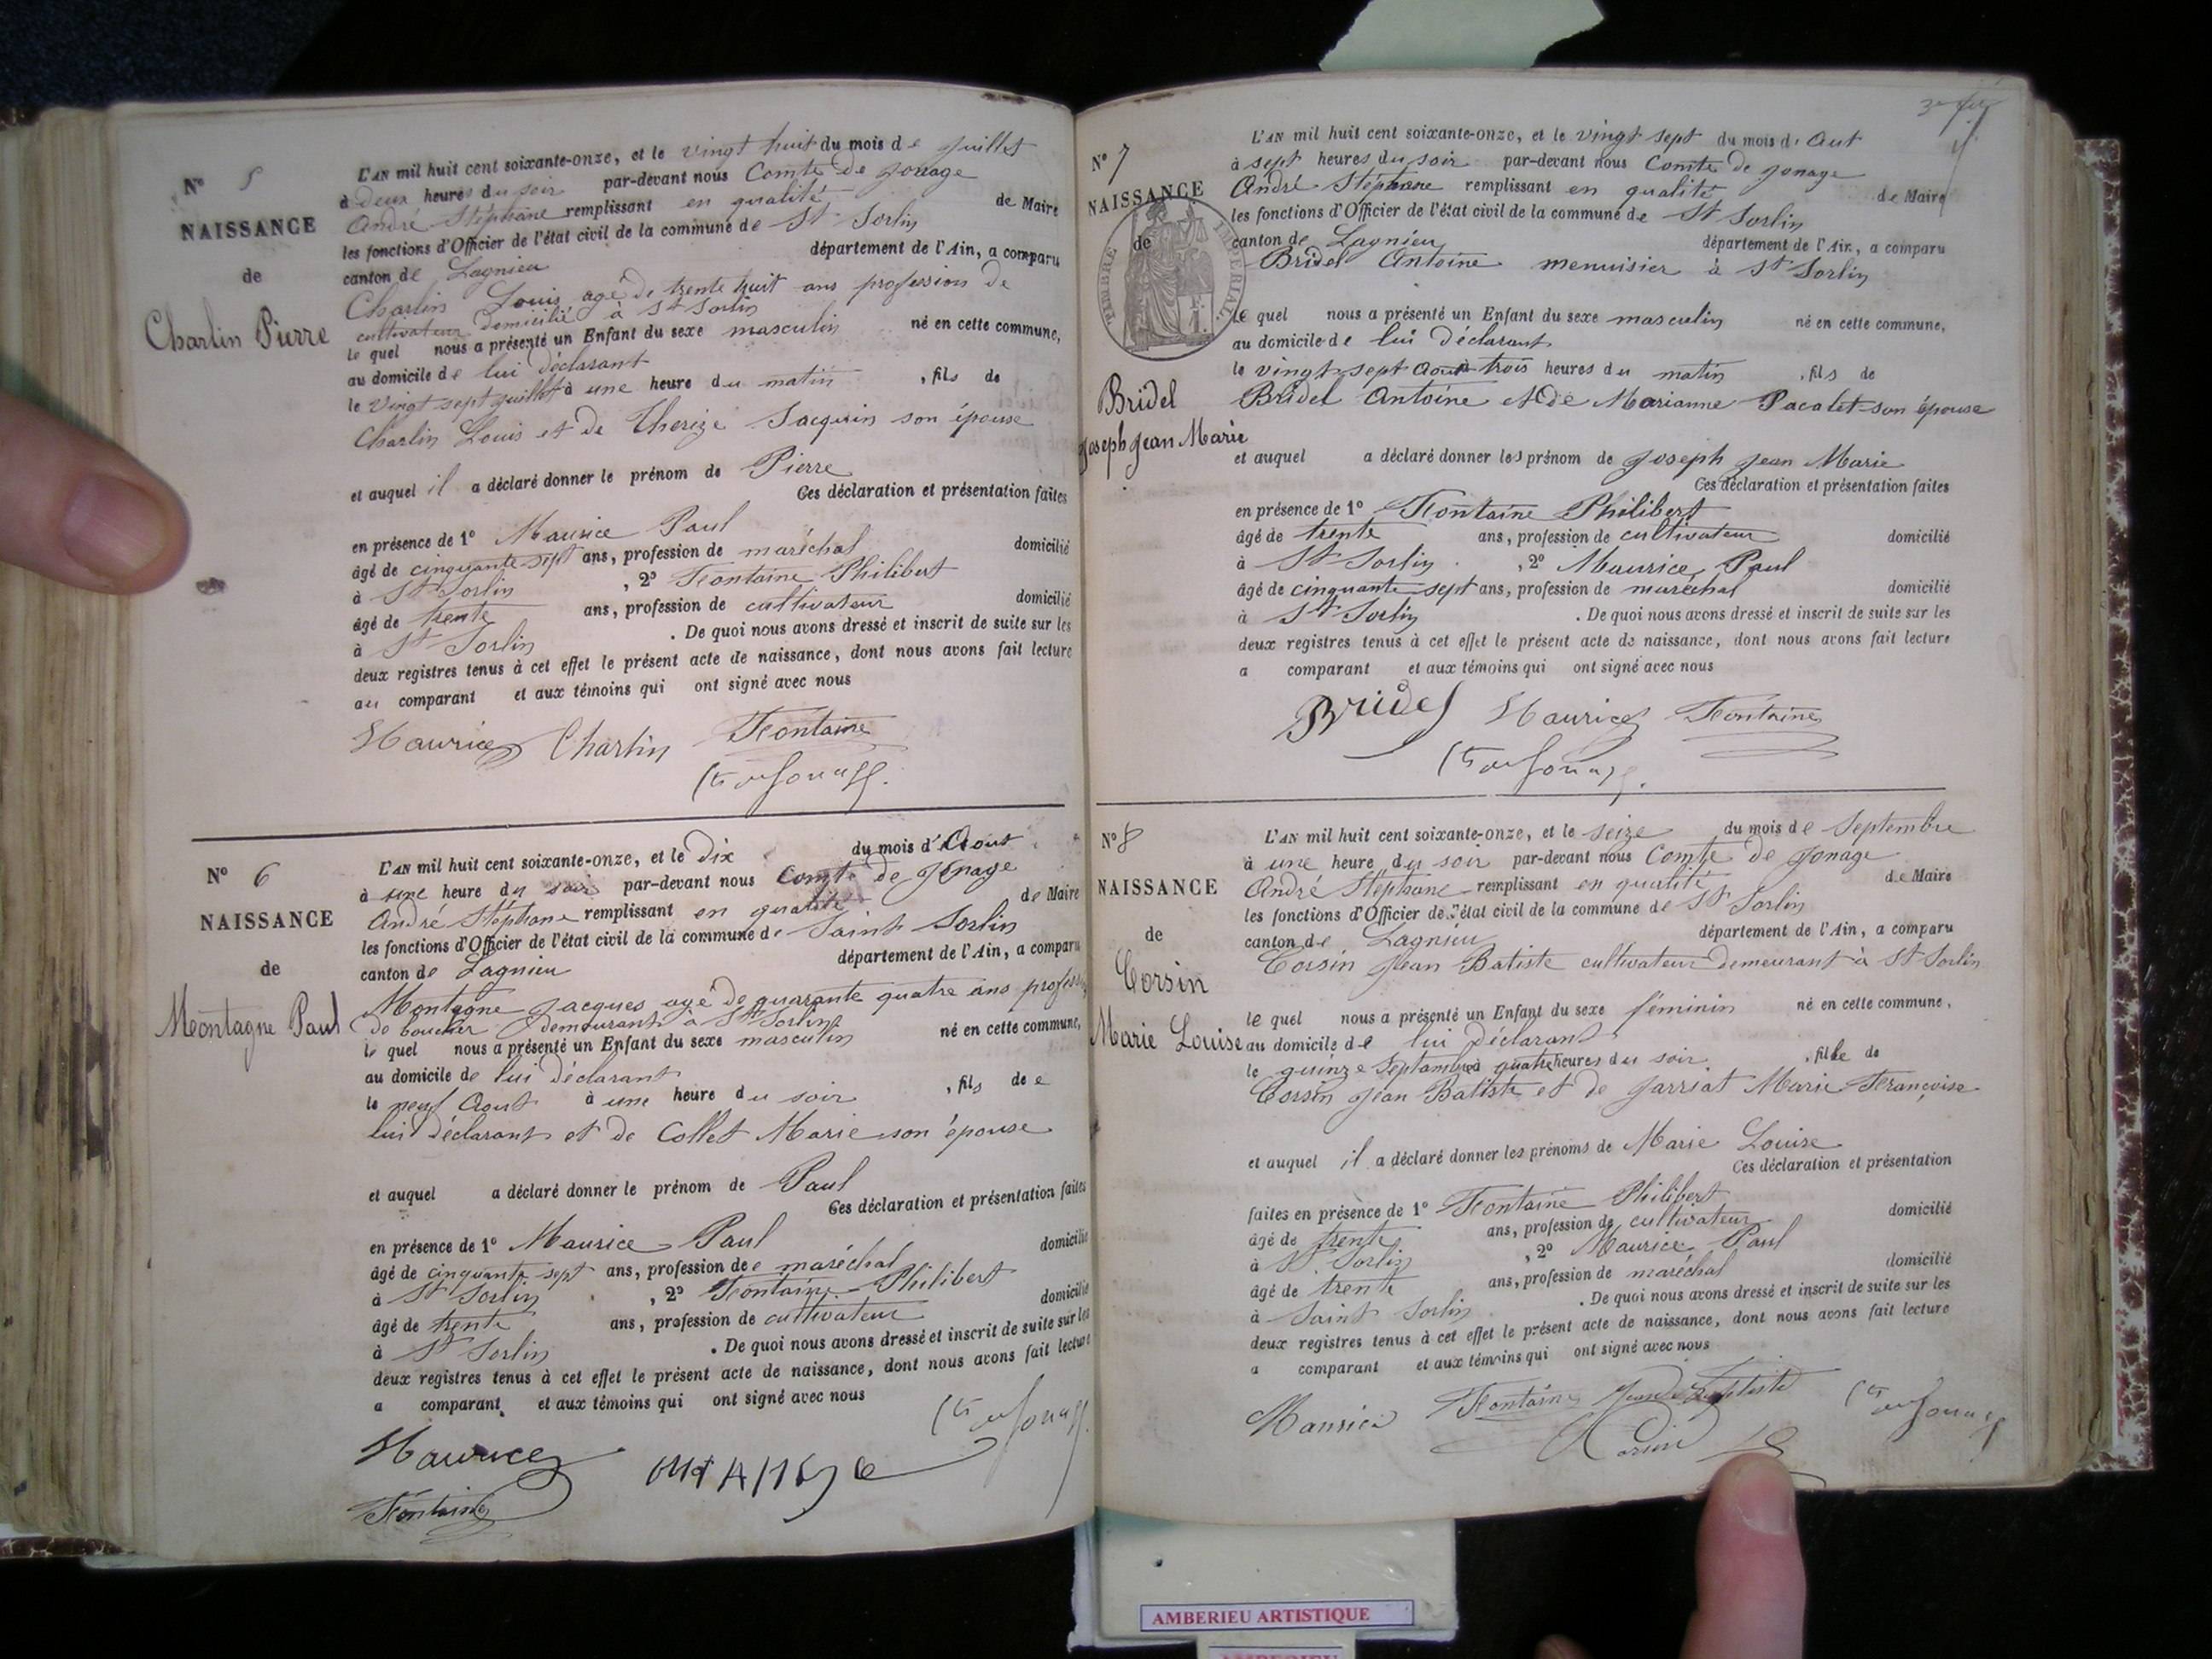 N° 5
NAISSANCE
de
Charlin Pierre
L'AN mil huit cent soixante-onze, et le vingt huit du mois de juillet
à deux heures du soir par-devant nous Comte de Jonage
André Stéphane remplissant en qualité de Maire
les fonctions d'Officier de l'état civil de la commune de St Sorlin
canton de Lagnieu département de l'Ain, a comparu
Charlin Louis agé de trente huit ans profession de
cultivateur domicilié à St Sorlin
le quel nous a présenté un Enfant du sexe masculin né en cette commune,
au domicile de lui déclarant
le vingt sept juillet à une heure du matin, fils de
Charlin Louis et de Therize Jacquin son épouse
et auquel il a déclaré donner le prénom de Pierre
Ces déclaration et présentation faites
en présence de 1° Maurice Paul
âgé de cinquante sept ans, profession de maréchal domicilié
à St Sorlin, 2° Fontaine Philibert
âgé de trente ans, profession de cultivateur domicilié
à St Sorlin. De quoi nous avons dressé et inscrit de suite sur les
deux registres tenus à cet effet le présent acte de naissance, dont nous avons fait lecture
au comparant et aux témoins qui ont signé avec nous
Maurice Charlin Fontaine
Cte de Jonage
N° 6
NAISSANCE
de
Montagne Paul
L'AN mil huit cent soixante-onze, et le dix du mois d'Aout
à une heure du soir par-devant nous Comte de Jonage
André Stéphane remplissant en qualité de Maire
les fonctions d'Officier de l'état civil de la commune de Saint Sorlin
canton de Lagnieu département de l'Ain, a comparu
Montagne Jacques agé de quarante quatre ans profession
de boucher demeurant à St Sorlin
le quel nous a présenté un Enfant du sexe masculin né en cette commune,
au domicile de lui déclarant
le neuf Aout à une heure du soir, fils de e
lui déclarant et de Collet Marie son épouse
et auquel a déclaré donner le prénom de Paul
Ces déclaration et présentation faites
en présence de 1° Maurice Paul
âgé de cinquante sept ans, profession de maréchal domicilié
à St Sorlin, 2° Fontaine Philibert
âgé de trente ans, profession de cultivateur domicilié
à St Sorlin. De quoi nous avons dressé et inscrit de suite sur les
deux registres tenus à cet effet le présent acte de naissance, dont nous avons fait lecture
a comparant et aux témoins qui ont signé avec nous
Cte de Jonage
Maurice
Fontaine
N° 7
NAISSANCE
de
TIMBRE IMPERIAL
Bridel
Joseph Jean Marie
L'AN mil huit cent soixante-onze, et le vingt sept du mois d'Aut
à sept heures du soir par-devant nous Comte de Jonage
André Stéphane remplissant en qualité de Maire
les fonctions d'Officier de l'état civil de la commune de St Sorlin
canton de Lagnieu département de l'Ain, a comparu
Bridel Antoine menuisier à St Sorlin
le quel nous a présenté un Enfant du sexe masculin né en cette commune,
au domicile de lui déclarant
le vingt sept Aout à trois heures du matin, fils de
Bridel Antoine et de Marianne Pacalet son épouse
et auquel a déclaré donner les prénom de Joseph Jean Marie
Ces déclaration et présentation faites
en présence de 1° Fontaine Philibert
âgé de trente ans, profession de cultivateur domicilié
à St Sorlin, 2° Maurice Paul
âgé de cinquante sept ans, profession de maréchal domicilié
à St Sorlin. De quoi nous avons dressé et inscrit de suite sur les
deux registres tenus à cet effet le présent acte de naissance, dont nous avons fait lecture
a comparant et aux témoins qui ont signé avec nous
Bridel Maurice Fontaine
Cte de Jonage
N° 8
NAISSANCE
de
Corsin
Marie Louise
L'AN mil huit cent soixante-onze, et le seize du mois de Septembre
à une heure du soir par-devant nous Comte de Jonage
André Stéphane remplissant en qualité de Maire
les fonctions d'Officier de l'état civil de la commune de St Sorlin
canton de Lagnieu département de l'Ain, a comparu
Corsin Jean Batiste cultivateur demeurant à St Sorlin
le quel nous a présenté un Enfant du sexe féminin né en cette commune,
au domicile de lui déclarant
le quinze Septambre à quatre heures du soir, fille de
Corsin Jean Batiste et de Jarriat Marie Françoise
et auquel il a déclaré donner les prénoms de Marie Louise
Ces déclaration et présentation
faites en présence de 1° Fontaine Philibert
âgé de trente ans, profession de cultivateur domicilié
à St Sorlin, 2° Maurice Paul
âgé de trente ans, profession de maréchal domicilié
à Saint Sorlin. De quoi nous avons dressé et inscrit de suite sur les
deux registres tenus à cet effet le présent acte de naissance, dont nous avons fait lecture
a comparant et aux témoins qui ont signé avec nous
Maurice Fontaine Jean Baptiste Cte de Jonage
Corsin
AMBERIEU ARTISTIQUE
AMBERIEU